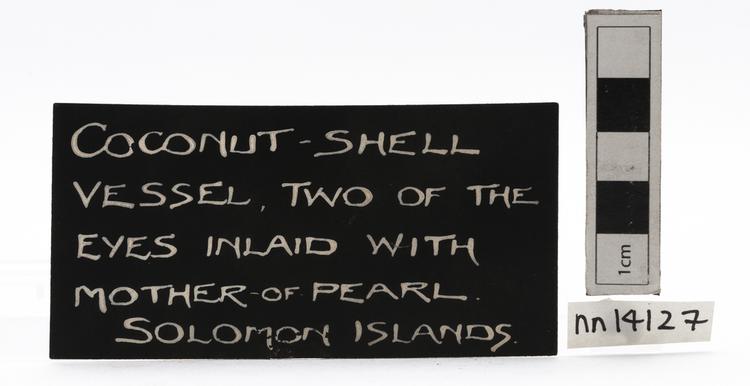 COCONUT-SHELL
VESSEL, TWO OF THE
EYES INLAID WITH
MOTHER-OF PEARL.
SOLOMON ISLANDS.
1cm
nn14127